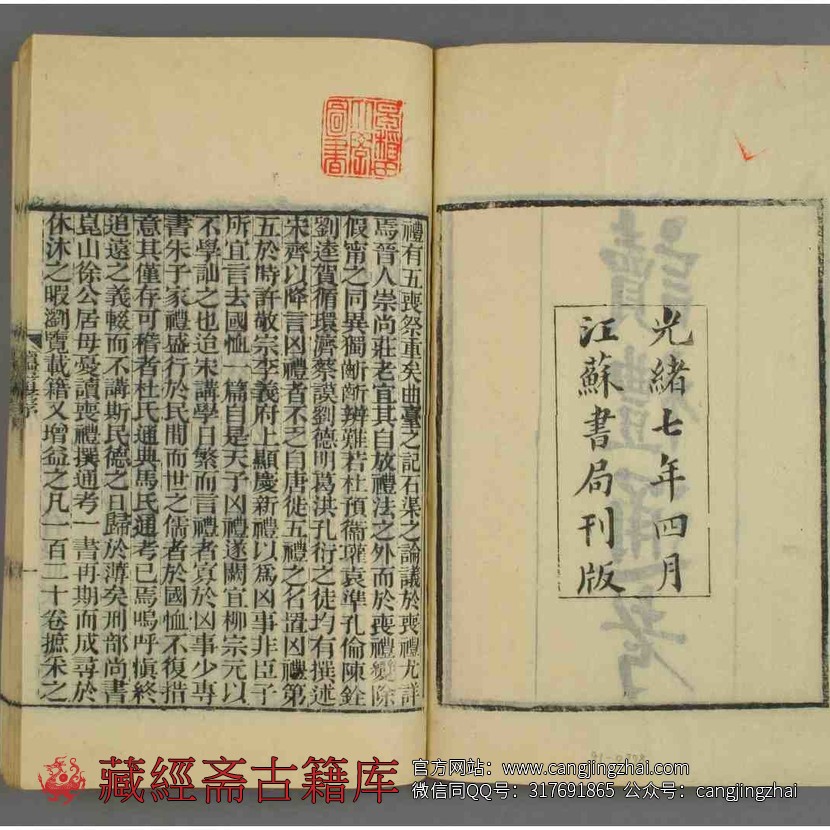 光緒七年四月
江蘇書局刊版
禮有五喪祭重矣曲臺之記石渠之論議於喪禮尤詳
焉晉人崇尚莊老宜其自放禮法之外而於喪禮變除
假甯之同異獨斷斷辨難若杜預衞瓘袁準孔倫陳銓
劉逵賀循環濟蔡謨劉德明葛洪孔衍之徒均有撰述
宋齊以降言凶禮者不乏自唐徙五禮之名置凶禮第
五於時許敬宗李義府上顯慶新禮以爲凶事非臣子
所宜言去國恤一篇自是天子凶禮遂闕宜柳宗元以
不學訕之也迨宋講學日繁而言禮者寡於凶事少專
書朱子家禮盛行於民間而世之儒者於國恤不復措
意其僅存可稽者杜氏通典馬氏通考已焉嗚呼慎終
追遠之義輟而不講斯民德之日歸於薄矣刑部尚書
崑山徐公居母憂讀喪禮撰通考一書再期而成尋於
休沐之暇瀏覽載籍又增益之凡一百二十卷摭采之
一
圖書
藏經斋古籍库
官方网站：www.cangjingzhai.com
微信同QQ号：317691865 公众号：cangjingzhai